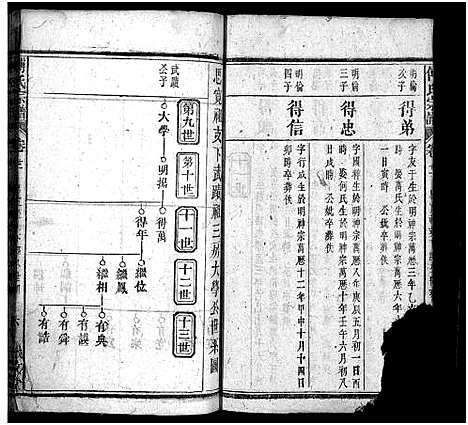 明倫
次子
得弟
字友于生於明神宗萬歷三年乙
時娶萬氏生於明神宗萬歷六年
一日寅時 公妣卒葬佚
明倫
三子
得忠
字國梓生於明神宗萬歷十年壬午六月初一日酉
時娶何氏生於明神宗萬歷十年壬午六月初八
時 公妣卒葬佚
明倫
四子
得信
字行咸生於明神宗萬歷十二年甲申十月十四日
卯時卒葬佚
思寬禮支下武蹟禮三房大學公世系圖
第九世
第十世
十一世
十二世
十三世
武蹟
公子
大學
明揚
得萬
得年
繼位
繼鳳
繼相
有典
有謨
有舜
有誥